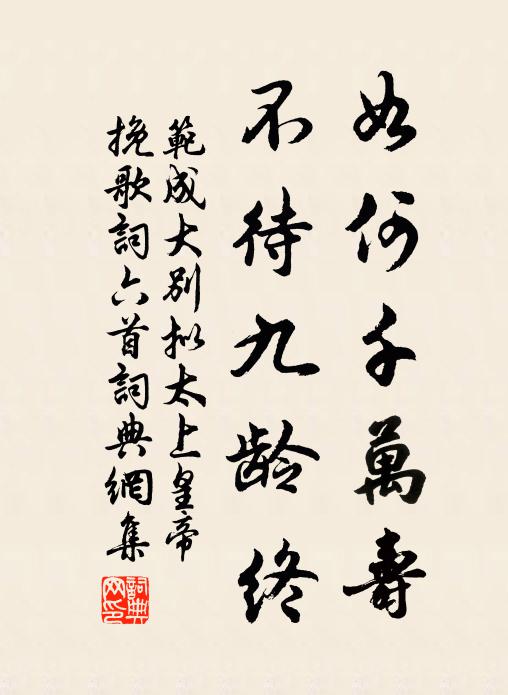 如何千萬壽
不待九龄终
範成大别拟太上皇帝
挽歌詞六首詞典網集
詞典网印